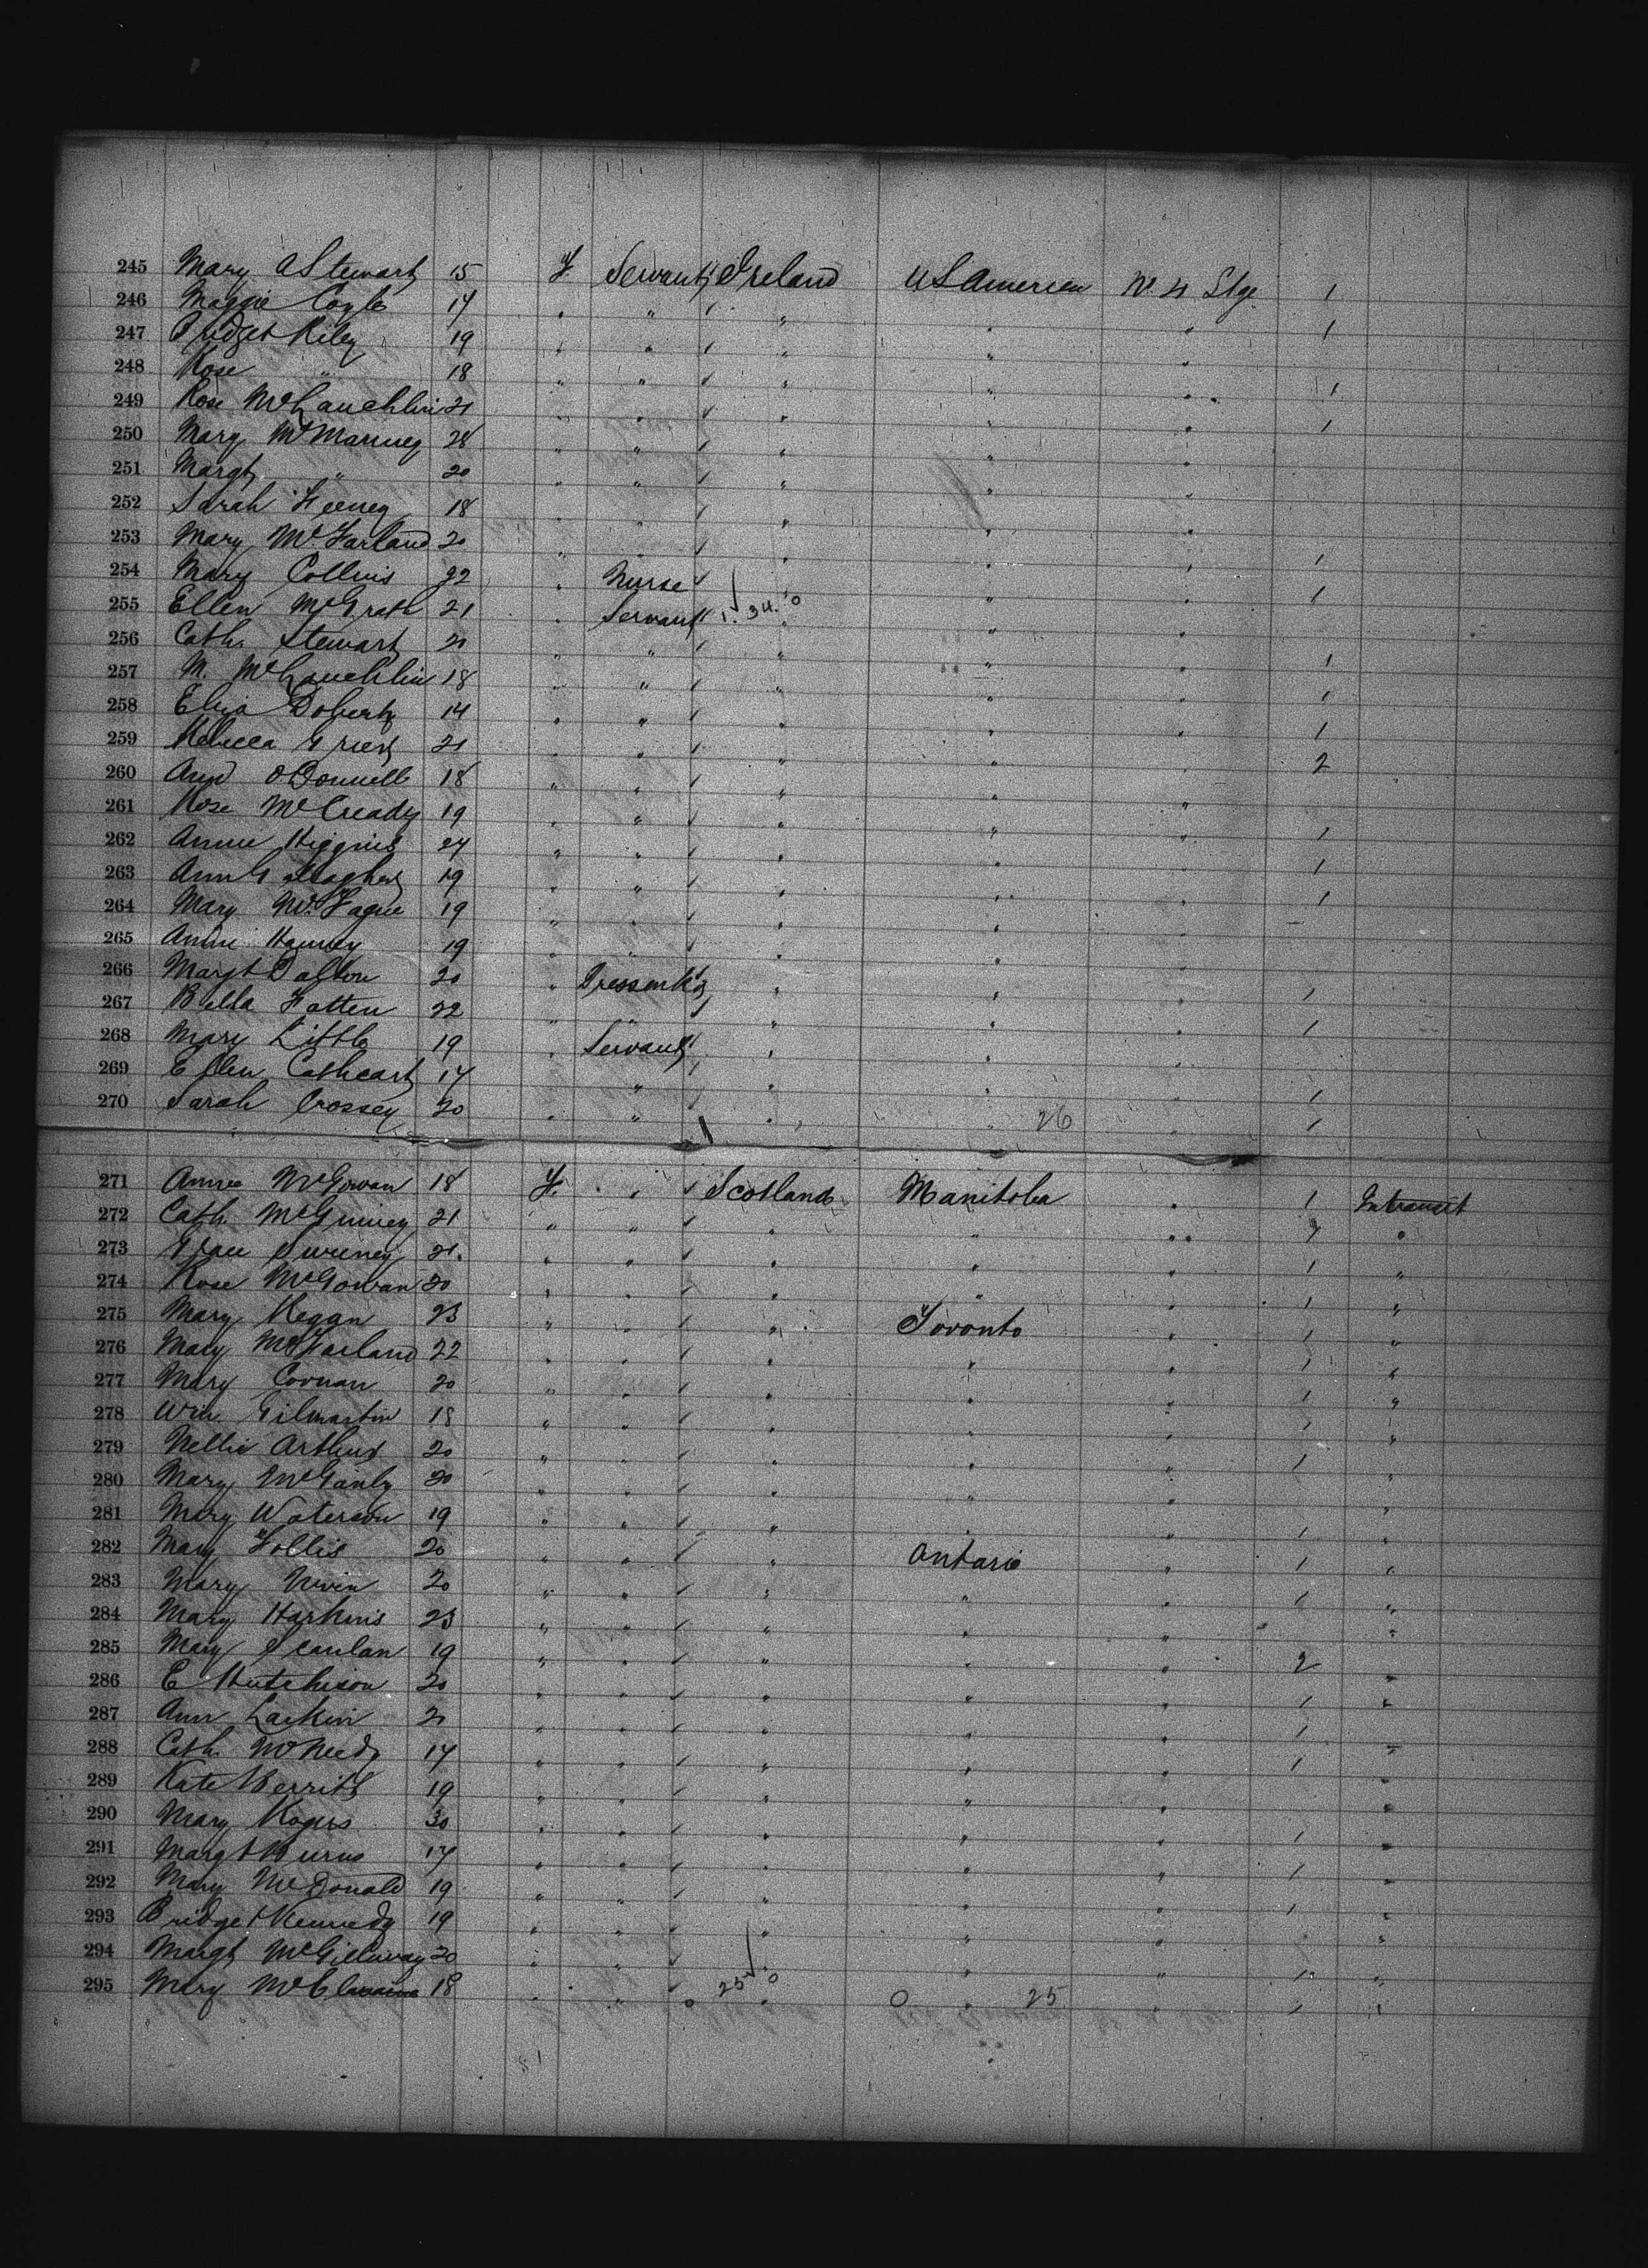 245 Mary A Stewart 15 F Servant Ireland U S America No. 4 Stge 1
246 Maggie Coyle 17 " " " " " 1
247 Bridget Riley 19 " " " " "
248 Rose " 18 " " " " " 1
249 Rose McLauchlin 21 " " " " " 1
250 Mary McManney 28 " " " " "
251 Margt " 20 " " " " "
252 Sarah Feeney 18 " " " " "
253 Mary McFarland 20 " " " " " 1
254 Mary Collins 22 " Nurse " " " 1
255 Ellen McGrath 21 " Servant 1. 34. 0 " " "
256 Cath. Stewart 21 " " " " " 1
257 M. McLauchlin 18 " " " " " 1
258 Eliza Doherty 14 " " " " " 1
259 Rebecca Greer 21 " " " " " 2
260 Ann O'Donnell 18 " " " " "
261 Rose McCready 19 " " " " " 1
262 Annie Higgins 24 " " " " " 1
263 Ann Gallagher 19 " " " " " 1
264 Mary McFague 19 " " " " "
265 Annie 19 " " " " "
266 Margt Dalton 20 " Dressmkr " " " 1
267 Bella Fatten 22 " " " " " 1
268 Mary Little 19 " Servant " " "
269 Ellen Cathcart 17 " " " " " 1
270 Sarah Crossey 20 " " " " 26 " 1
271 Annie McGowan 18 F. " Scotland Manitoba " 1 Intransit
272 Cath. 21 " " " " " "
273 Grace Sweeney 21 " " " " " 1 "
274 Rose McGowan 20 " " " " " 1 "
275 Mary Regan 23 " " " Toronto " 1 "
276 Mary McFarland 22 " " " " " 1 "
277 Mary 20 " " " " " 1 "
278 Wm. Gilmartin 18 " " " " " 1 "
279 Nellie Arthur 20 " " " " " 1 "
280 Mary 20 " " " " " "
281 Mary Waterson 19 " " " " " 1 "
282 Mary Follis 20 " " " Ontario " 1 "
283 Mary 20 " " " " " 1 "
284 Mary Harkins 23 " " " " " "
285 Mary Scanlan 19 " " " " " 2 "
286 E Hutchison 20 " " " " " 1 "
287 Ann Larkin 21 " " " " " 1 "
288 Cath. 17 " " " " " 1 "
289 Kate 19 " " " " " "
290 Mary Rogers 30 " " " " " 1 "
291 Margt Burns 17 " " " " " 1 "
292 Mary McDonald 19 " " " " " 1 "
293 Bridget Kennedy 19 " " " " " "
294 Margt McGillway 20 " " " " " 1 "
295 Mary 18 " " 25 0 0 " 25 " 1 "